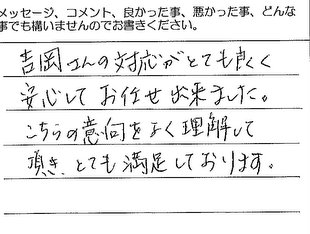 メッセージ、コメント、良かった事、悪かった事、どんな
事でも構いませんのでお書きください。
吉岡さんの対応がとても良くく
安心してお任せ出来ました。
こちらの意向をよく理解して
頂き、とても満足しております。